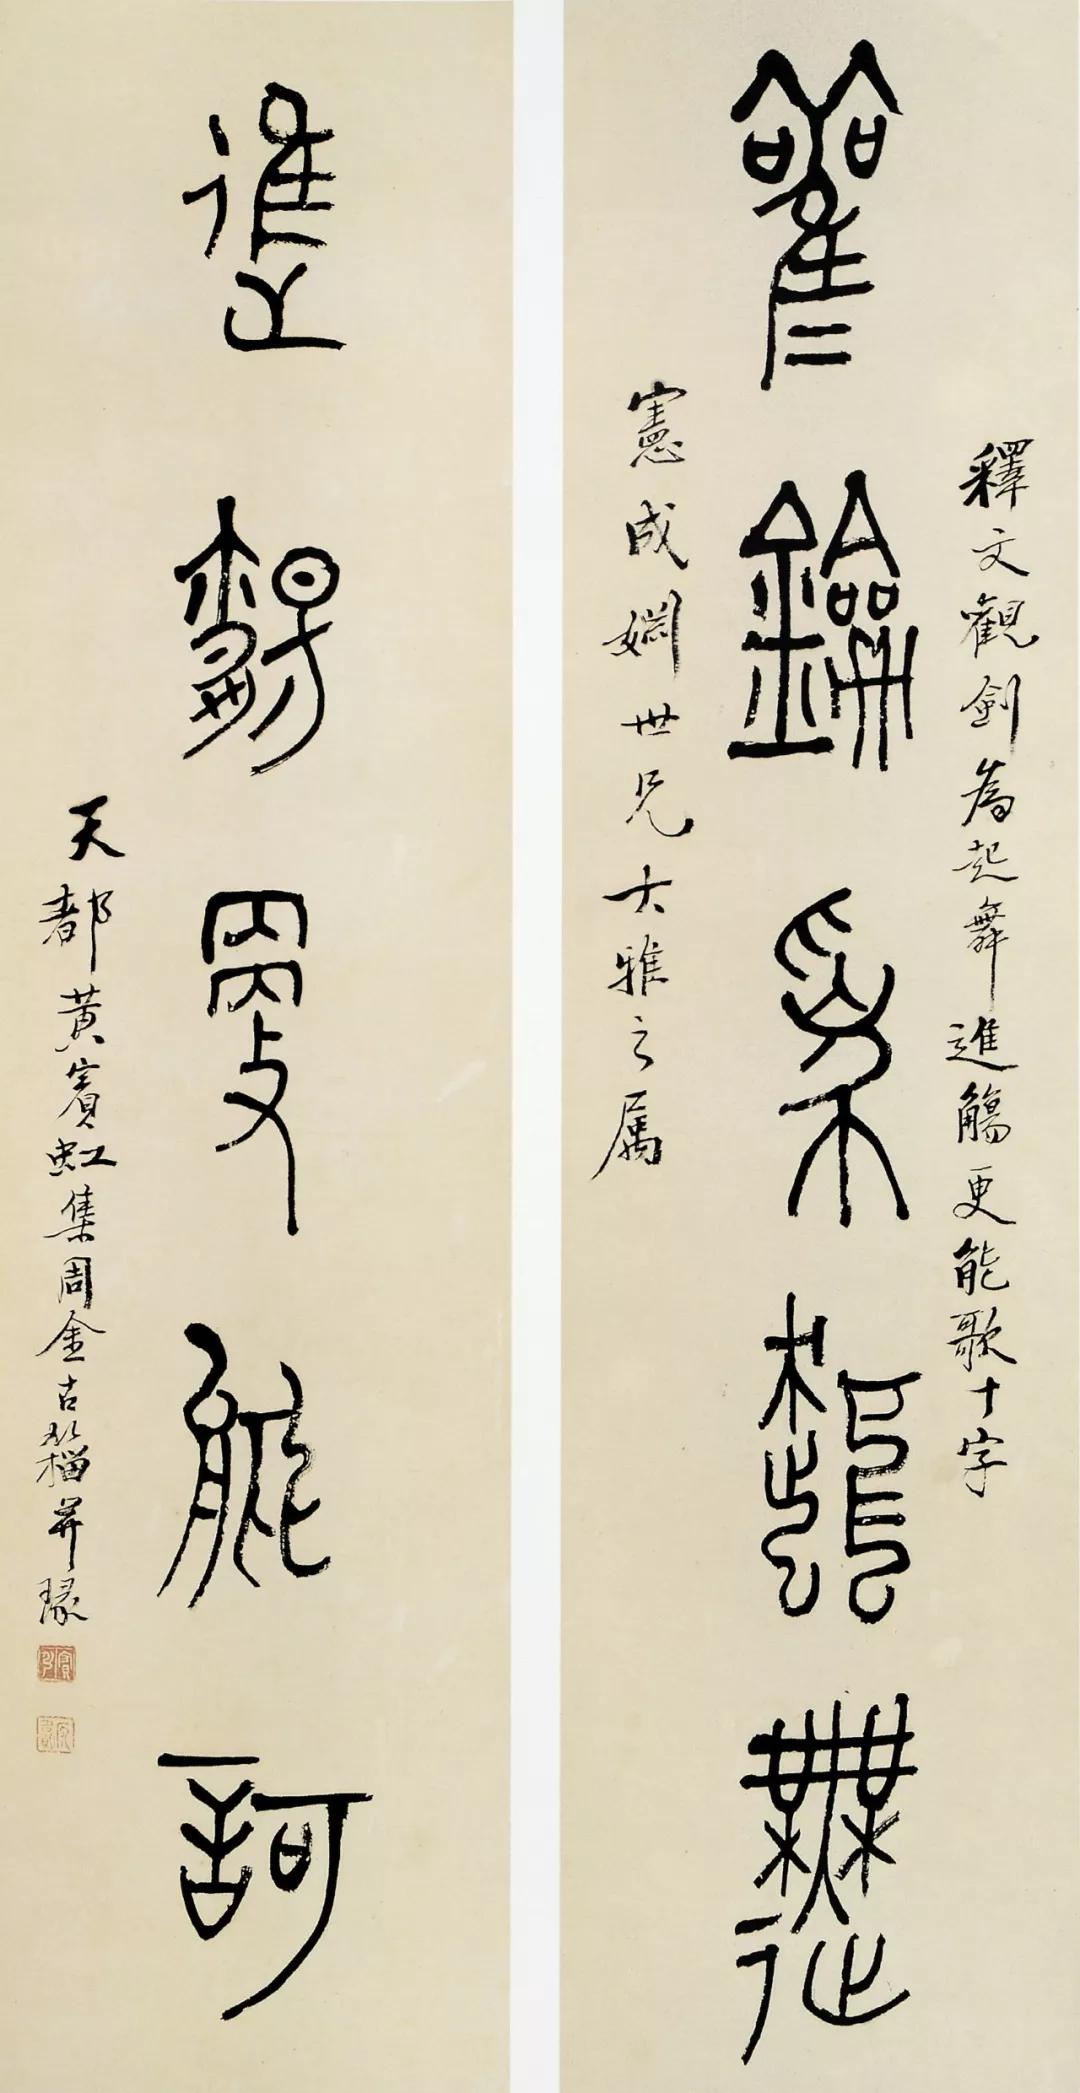 釋文觀劍為起舞進觴更能歌十字
雚鐱為起舞
憲成嫻世兄大雅之屬
進觴更能訶
天都黃賓虹集周金古籀并瑑